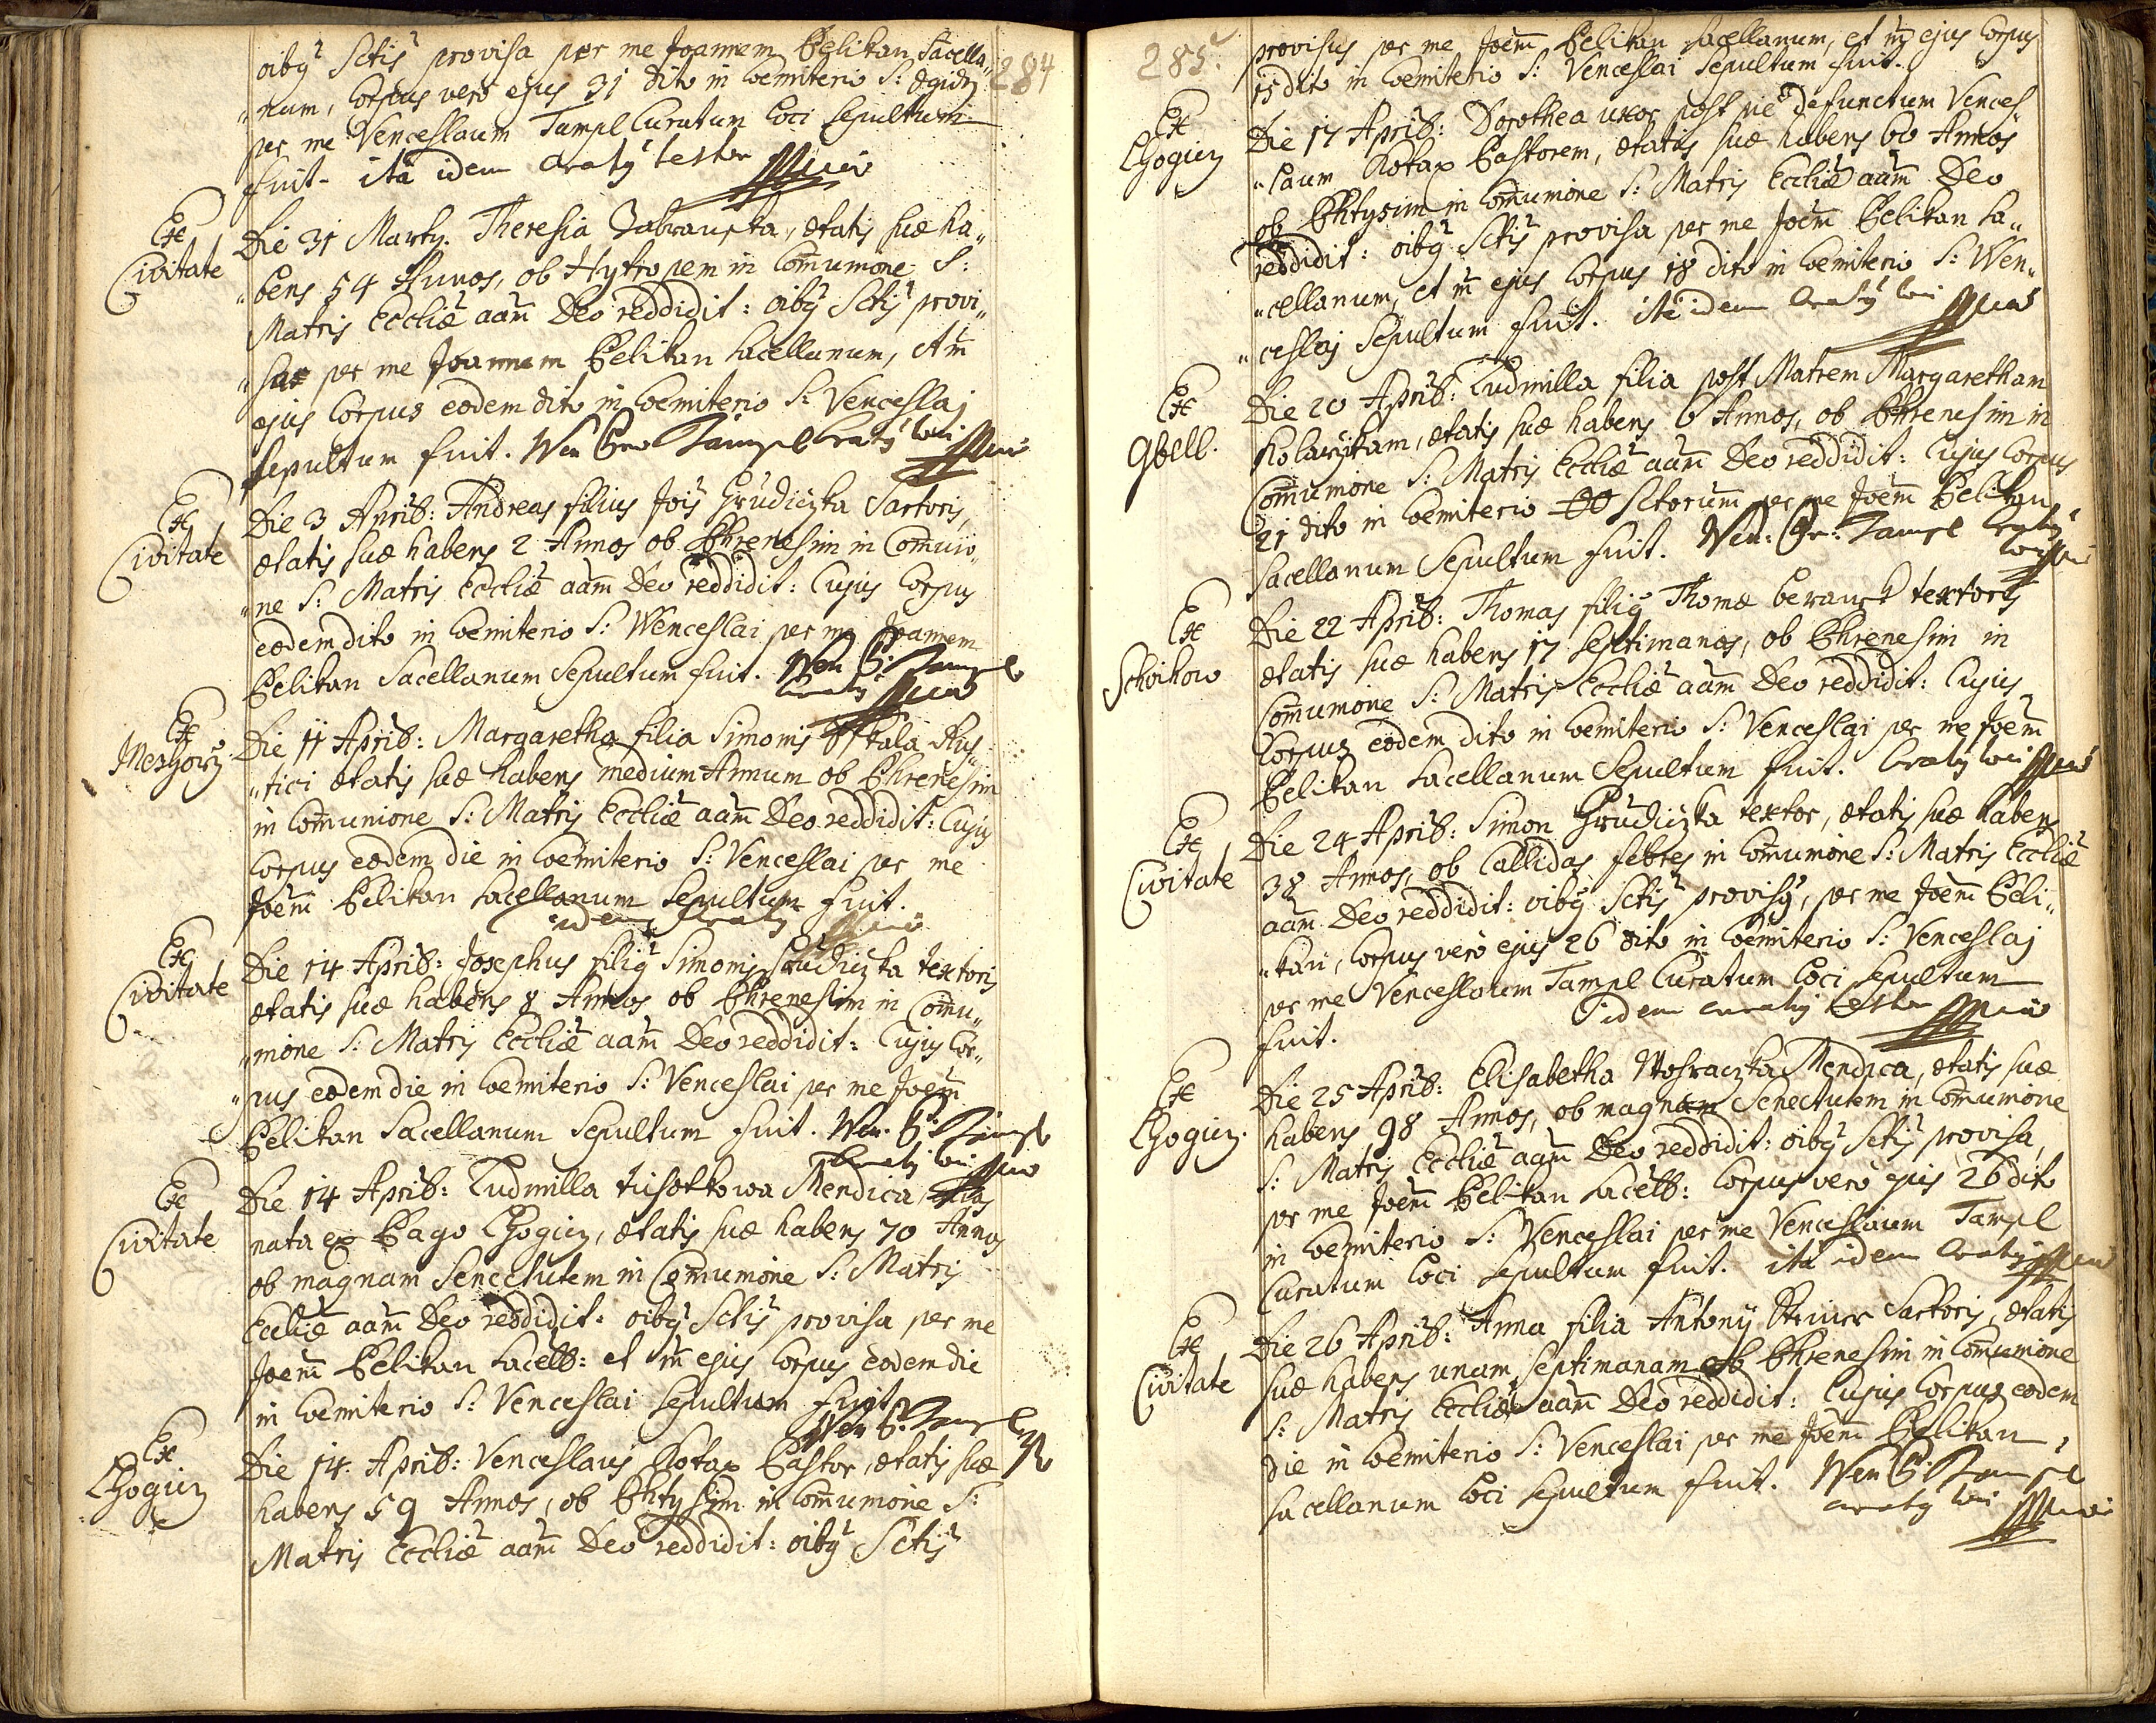 284
oibꝰ Sctis provisa per me Joannem Pelikan Sacella„
„num, Corpus vero ejus 31 dito in Coemiterio S: Egidy
per me Venceslaum Tampl Curatum Loci Sepultum
fuit. ita idem testor
Ex Civitate
Die 31 Marty. Theresia Zabranska, ætatis suæ ha„
„bens 54 Annos, ob Hytropem in Com̃unione S:
Matris Eccliæ aam̃ Deo reddidit: oibꝰ Sctis provi„
„sa per me Joannem Pelikan Sacellanum,
ejus Corpus eodem dito in Coemiterio S: Venceslaj
sepultum fuit. Wen Tampl
Ex Civitate
Die 3 Aprib: Andreas filius Jois Hrudiczka Sartoris,
ætatis suæ habens 2 Annos ob Phrenesim in Com̃unio„
„ne S: Matris Eccliæ aam̃ Deo reddidit: Cujus Corpus
eodem dito in Coemiterio S: Wenceslai per me Joannem
Pelikan Sacellanum Sepultum fuit. Wen Tampl
Ex
Die 11 Aprib: Margaretha filia Simonis Skala Rus„
„tici ætatis suæ habens medium Annum ob Phrenesim
in Com̃unione S: Matris Eccliæ aam̃ Deo reddidit: Cujus
Corpus eodem die in Coemiterio S: Venceslai per me
Joem̃ Pelikan Sacellanum Sepultum fuit.
idem
Ex Civitate
Die 14 Aprib: Josephus filiꝰ Simonis Hrudiczka textoris
ætatis suæ habens 8 Annos ob Phrenesim in Com̃u„
„nione S: Matris Eccliæ aam̃ Deo reddidit: Cujus Cor„
„pus eodem die in Coemiterio S: Venceslai per me Joem̃
Pelikan Sacellanum Sepultum fuit. Wen. Tampl
Ex Civitate
Die 14 Aprib: Ludmilla Mendica,
nata ex Pago Lhogicz, ætatis suæ habens 70 Annos
ob magnam Senectutem in Com̃unione S: Matris
Eccliæ aam̃ Deo reddidit: oibꝰ Sctis provisa per me
Joem̃ Pelikan Sacell: et ejus Corpus eodem die
in Coemiterio S: Venceslai Sepultum fuit
Wen Tampl
Ex Lhogicz
Die 14. Aprib: Venceslaus Kotax Pastor, ætatis suæ
habens 59 Annos, ob Phtysim in Com̃unione S:
Matris Eccliæ aam̃ Deo reddidit: oibꝰ Sctis
285
provisus per me Joem̃ Pelikan Sacellanum, et ejus Corpus
15 dito in Coemiterio S: Venceslai Sepultum fuit.
Ex Lhogicz
Die 17 Aprib: Dorothea uxor post pie defunctum Vences„
„laum Kotax Pastorem, ætatis suæ habens 60 Annos
ob Phtysim in Com̃unione S: Matris Eccliæ aam̃ Deo
reddidit: oibꝰ Sctis provisa per me Joem̃ Pelikan Sa„
„cellanum, et ejus Corpus 18 dito in Coemiterio S: Wen„
„ceslaj Sepultum fuit. ita idem
Ex Gbell.
Die 20 Aprib: Ludmilla filia post Matrem Margaretham
ætatis suæ habens 6 Annos, ob Phrenesim in
Com̃unione S: Matris Eccliæ aam̃ Deo reddidit: Cujus Corpus
21 dito in Coemiterio OO Sctorum per me Joem̃ Pelikan
Sacellanum Sepultum fuit. Wen: Tampl
Ex Schoikow
Die 22 Aprib: Thomas filiꝰ Thomæ textoris
ætatis suæ habens 17 Septimanas, ob Phrenesim in
Com̃unione S: Matris Eccliæ aam̃ Deo reddidit: Cujus
Corpus eodem dito in Coemiterio S: Venceslai per me Joem̃
Pelikan Sacellanum Sepultum fuit.
Ex Civitate
Die 24 Aprib: Simon Hrudiczka textor, ætatis suæ habens
38 Annos, ob Callidas febres in Com̃unione S: Matris Eccliæ
aam̃ Deo reddidit: oibꝰ Sctis provisꝰ, per me Joem̃ Peli„
„kan, Corpus vero ejus 26 dito in Coemiterio S: Venceslaj
per me Venceslaum Tampl Curatum Loci Sepultum
fuit. idem testor
Ex Lhogicz.
Die 25 Aprib: Elisabetha Mendica, ætatis suæ
habens 98 Annos, ob magnam Senectutem in Com̃unione
S: Matris Eccliæ aam̃ Deo reddidit: oibꝰ Sctis provisa,
per me Joem̃ Pelikan Sacell: Corpus vero ejus 26 dito
in Coemiterio S: Venceslai per me Venceslaum Tampl
Curatum Loci Sepultum fuit. ita idem
Ex Civitate
Die 26 Aprib: Anna filia Antony Sartoris, ætatis
suæ habens unam Septimanam ob Phrenesim in Com̃unione
S: Matris Eccliæ aam̃ Deo reddidit: Cujus Corpus eodem
die in Coemiterio S: Venceslai per me Joem̃ Pelikan
Sacellanum Loci Sepultum fuit. Wen Tampl